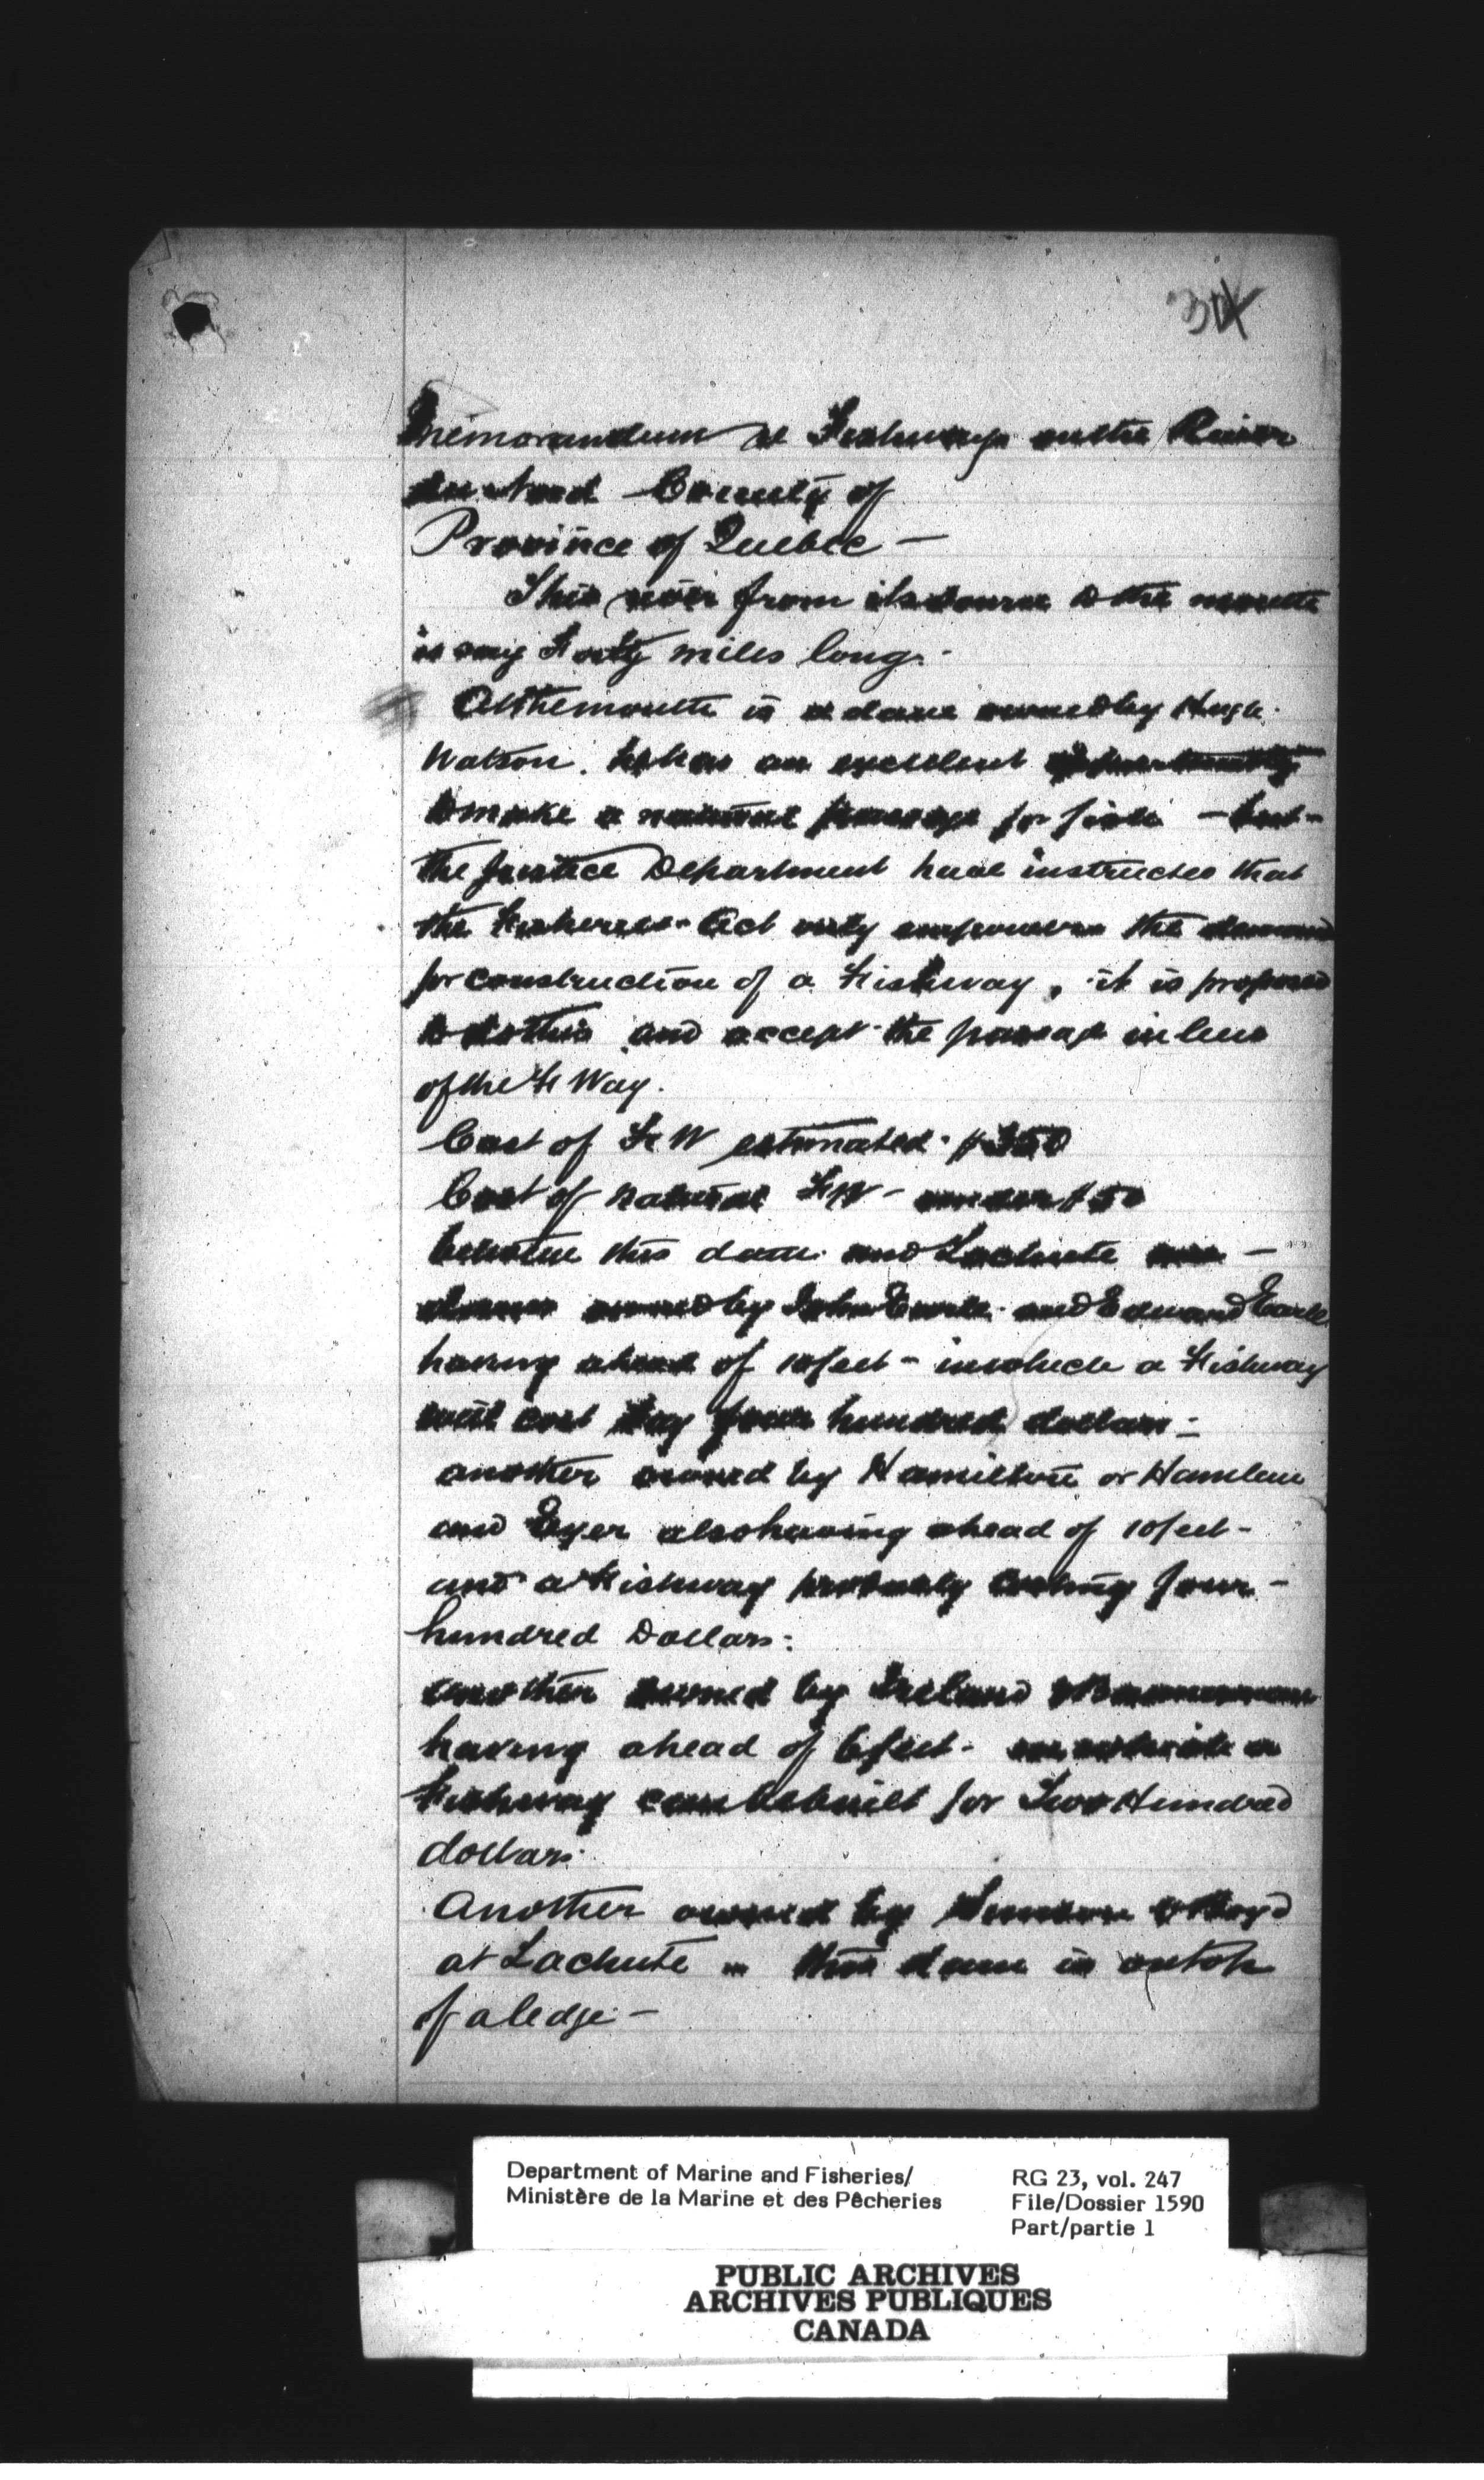 Memorandum re Fishways on the River
du Nord County of
Province of Quebec —
This river from its source to the mouth
is say Forty miles long. -
At the mouth is a dam owned by Hugh
Watson. he has an excellent
to make a natural passage for fish - but -
the Justice Department have instructed that
the Fisheries Act only empowers the demand
for construction of a Fishway, it is proposed
to do this and accept the passage in lieu
of the F Way.
Cost of F W estimated. $350
Cost of natural F W - under $50
between this dam and Lachute are —
dams owned by John Earle and Edward Earle
having a head of 10 feet - in which a Fishway
will cost say four hundred dollars -
another owned by Hamilton or Hamlin
and Eyer also having a head of 10 feet -
and a Fishway probably costing four -
hundred Dollars -
another owned by Ireland &
having a head of 6 feet - on which a
Fishway can be built for Two Hundred
dollars.
Another owned by & Boyd
at Lachute - this dam is on top
of a ledge —
Department of Marine and Fisheries/
Ministère de la Marine et des Pêcheries
RG 23, vol. 247
File/Dossier 1590
Part/partie 1
PUBLIC ARCHIVES
ARCHIVES PUBLIQUES
CANADA